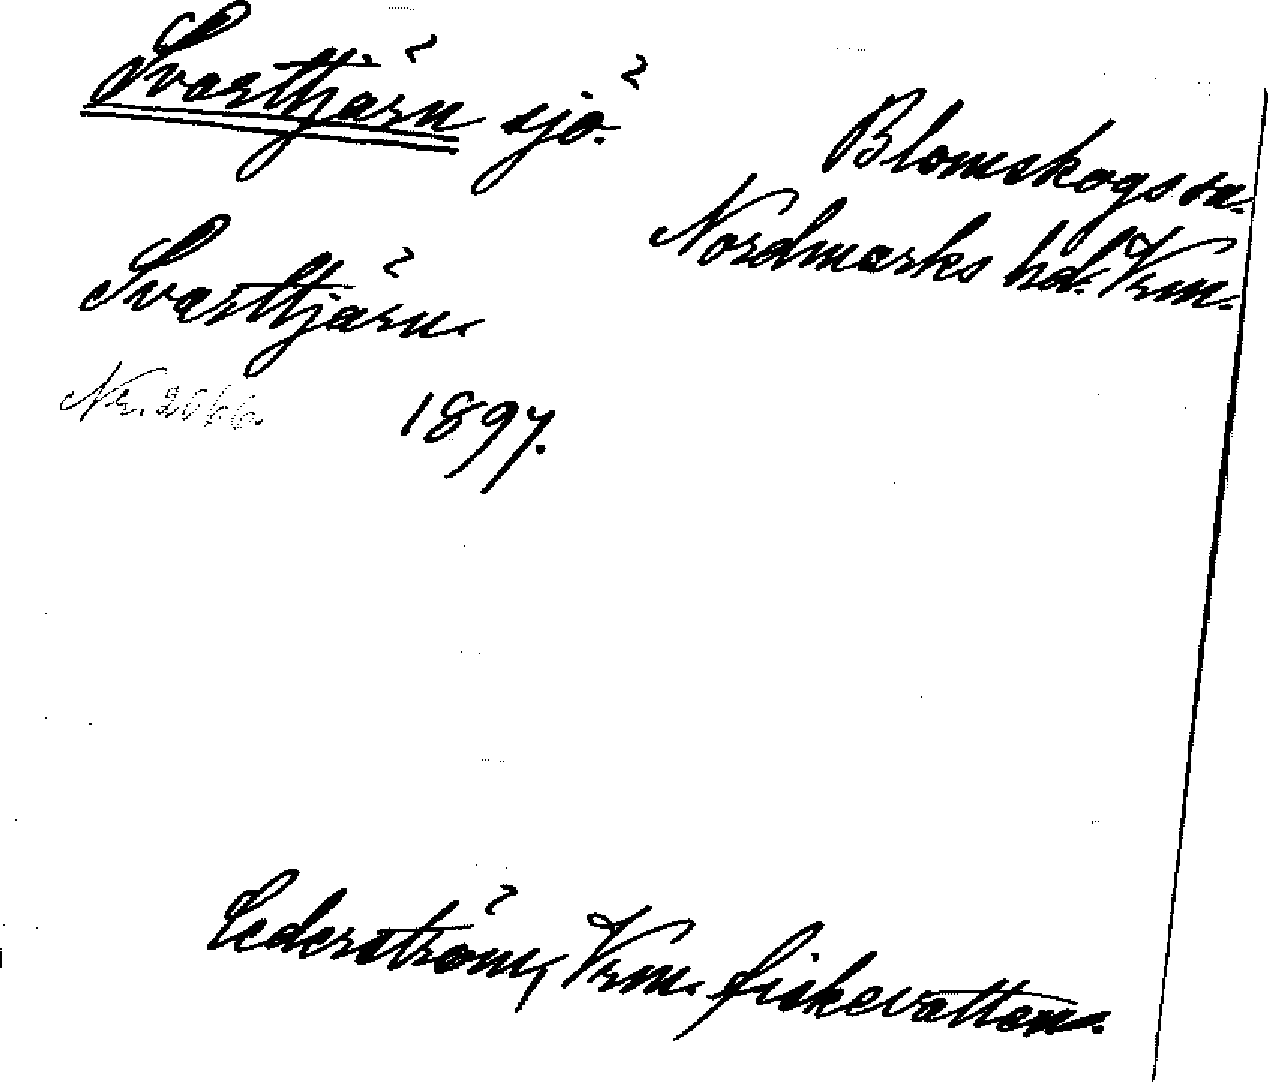 Svarttjärn sjö.
Blomskogs sn.
Nordmarks hd. Vrm.
Svarttjärn.
Nr. 2066.
1897.
Cederström, Vrm. fiskevatten.